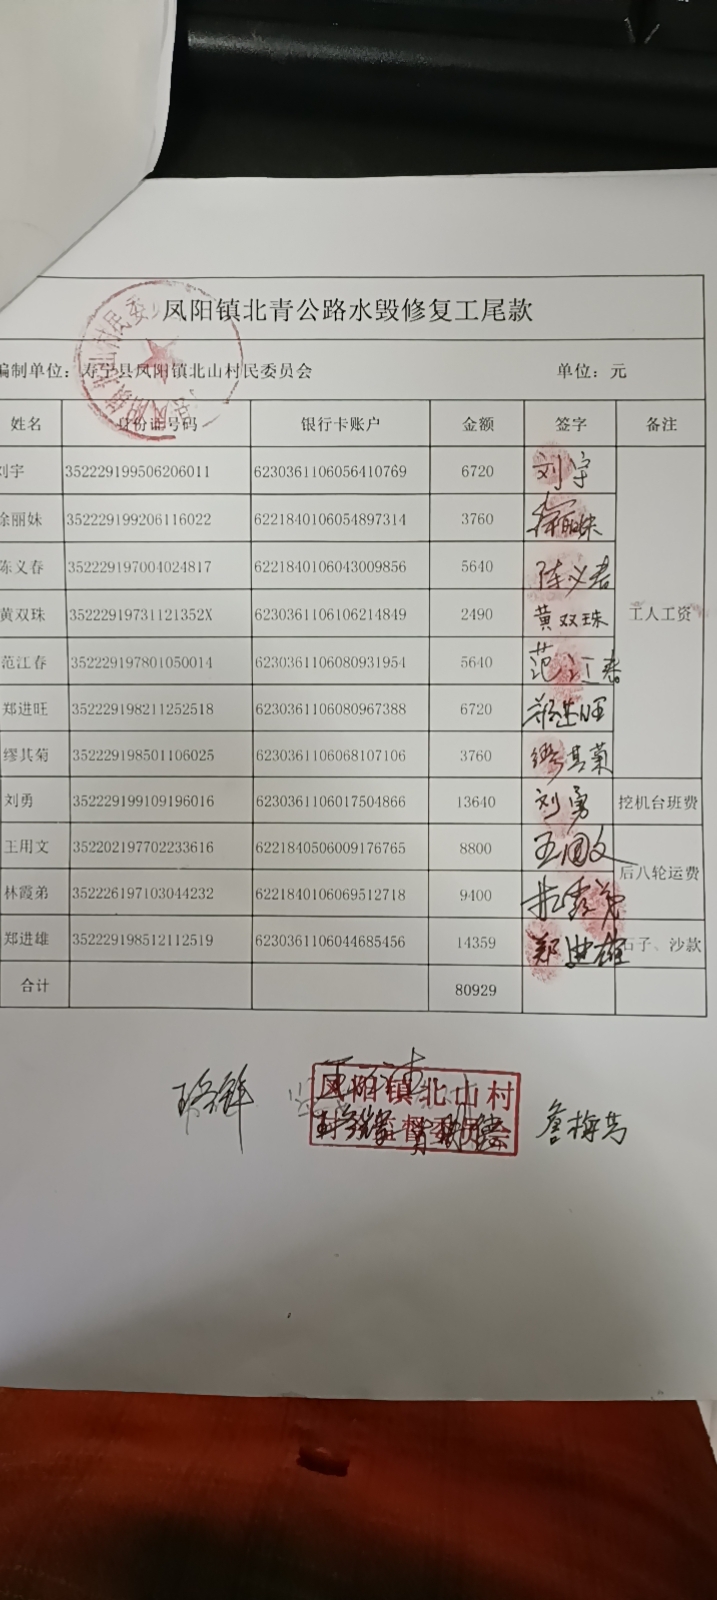 凤阳镇北青公路水毁修复工尾款
编制单位：寿宁县凤阳镇北山村民委员会 单位：元
姓名 身份证号码 银行卡账户 金额 签字 备注
刘宇 352229199506206011 6230361106056410769 6720 刘宇
徐丽妹 352229199206116022 6221840106054897314 3760 徐丽妹
陈义春 352229197004024817 6221840106043009856 5640 陈义春
黄双珠 35222919731121352X 6230361106106214849 2490 黄双珠 工人工资
范江春 352229197801050014 6230361106080931954 5640 范江春
郑进旺 352229198211252518 6230361106080967388 6720 郑进旺
缪其菊 352229198501106025 6230361106068107106 3760 缪其菊
刘勇 352229199109196016 6230361106017504866 13640 刘勇 挖机台班费
王用文 352202197702233616 6221840506009176765 8800 王用文 后八轮运费
林霞弟 352226197103044232 6221840106069512718 9400 林霞弟
郑进雄 352229198512112519 6230361106044685456 14359 郑进雄 石子、沙款
合计 80929
凤阳镇北山村
监督委员会
詹梅芳